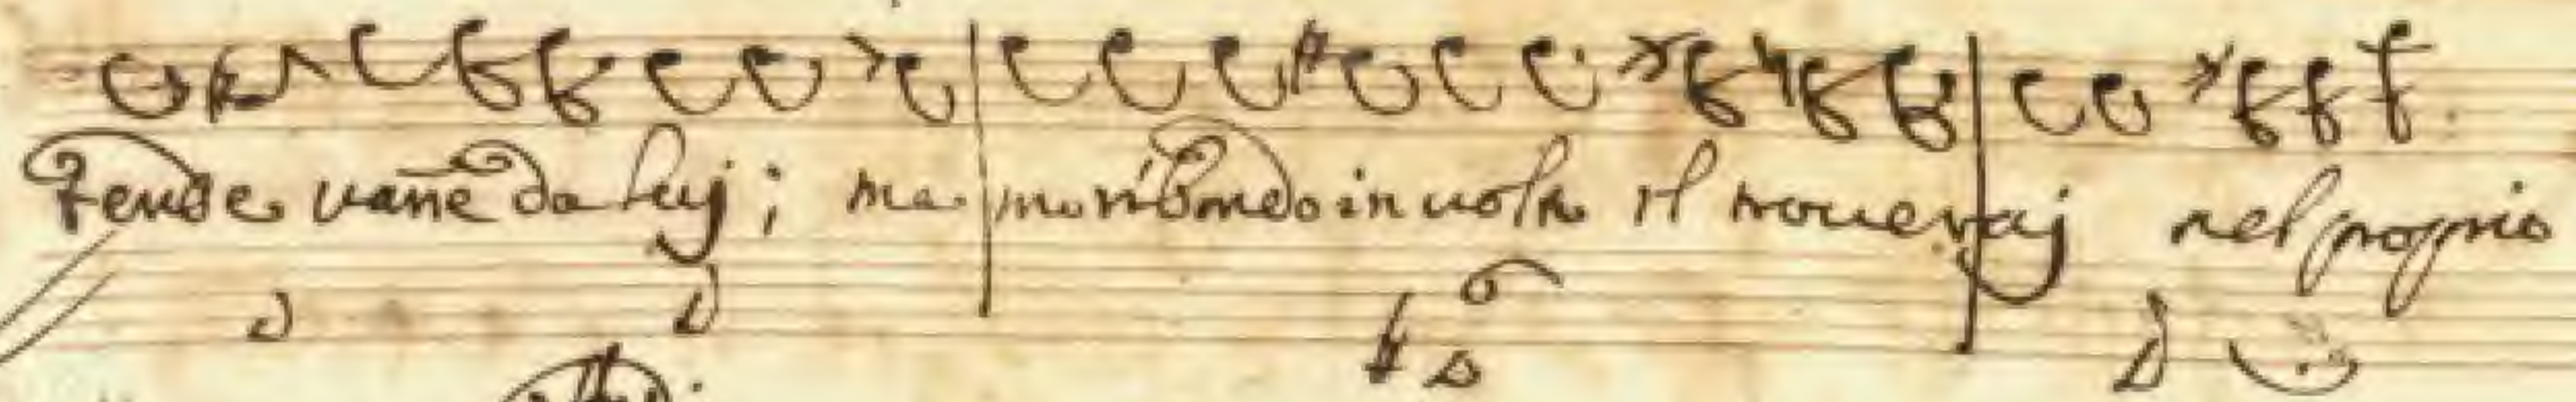 tende vane da luj; ma moribondo in uolto il troueraj nel proprio